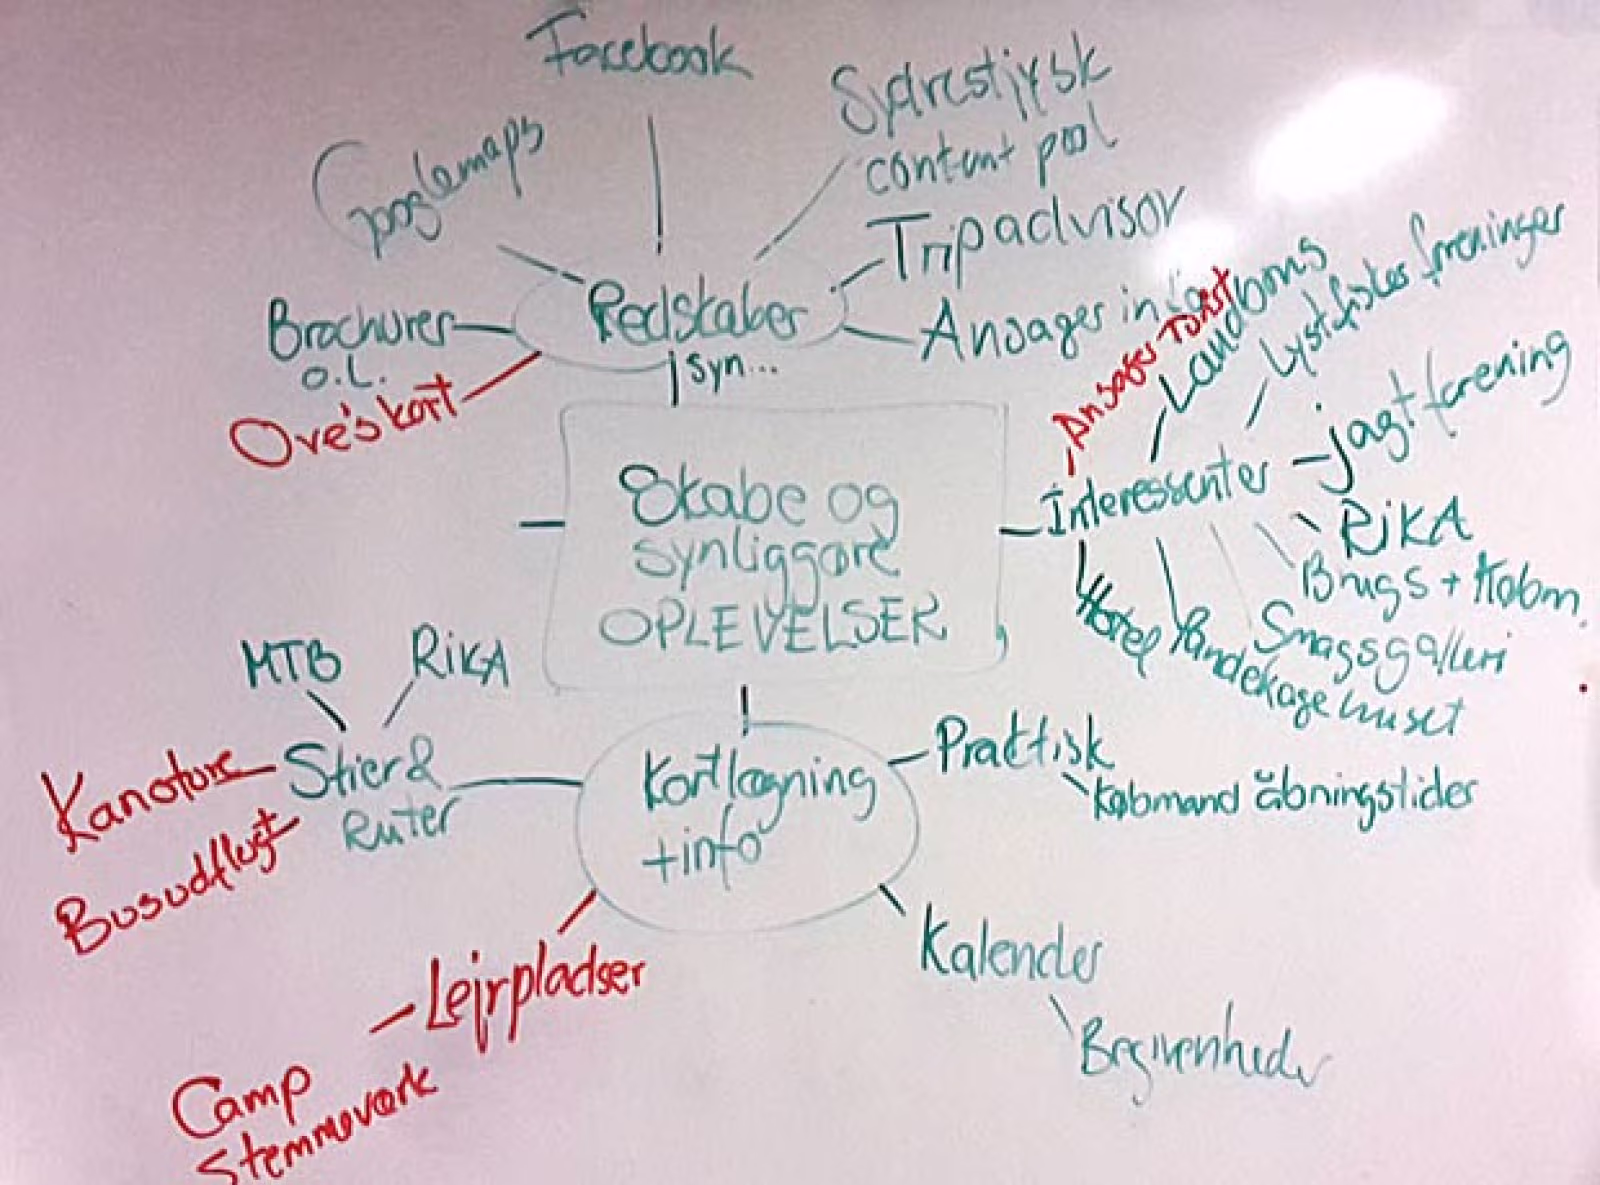 Facebook
Sydvestjysk
content pool
Googlemaps
Tripadvisor
Redskaber
Brochurer
o.l.
Ansager in
Syn...
Ove's kort
Ansager Turist
Landboms
Lystfisker foreninger
Jagtforening
Interessenter
RiKA
Brugs + Købm.
Smagsgalleri
Pandekagehuset
Hotel
Skabe og
synliggøre
OPLEVELSER
MTB
RiKA
Stier &
Ruter
Kanoture
Busudflugt
Kortlægning
+ info
Praktisk
Købmand åbningstider
Lejrpladser
Kalender
Begivenheder
Camp
Stemmeværk